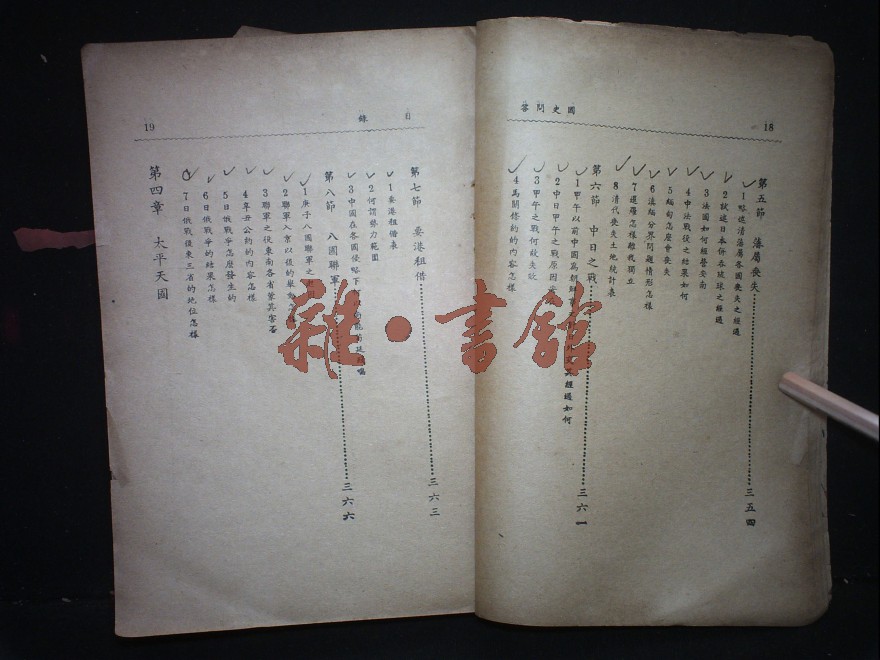 國史問答
18
第五節 藩屬喪失 三五四
1略述清藩屬各國喪失之經過
2試述日本併吞琉球之經過
3法國如何經營安南
4中法戰後之結果如何
5緬甸怎麼會喪失
6滇緬分界問題情形怎樣
7暹羅怎樣離我獨立
8清代喪失土地統計表
第六節 中日之戰 三六一
1甲午以前中國為朝鮮 經過如何
2中日甲午之戰原因
3甲午之戰何故失敗
4馬關條約的內容怎樣
目錄
19
第七節 要港租借 三六三
1要港租借表
2何謂勢力範圍
3中國在各國侵略下
第八節 八國聯軍 三六六
1庚子八國聯軍之
2聯軍入京以後的舉動
3聯軍之役東南各省蒙其害否
4辛丑公約的內容怎樣
5日俄戰爭怎麼發生的
6日俄戰爭的結果怎樣
7日俄戰後東三省的地位怎樣
第四章 太平天國
雜·書館